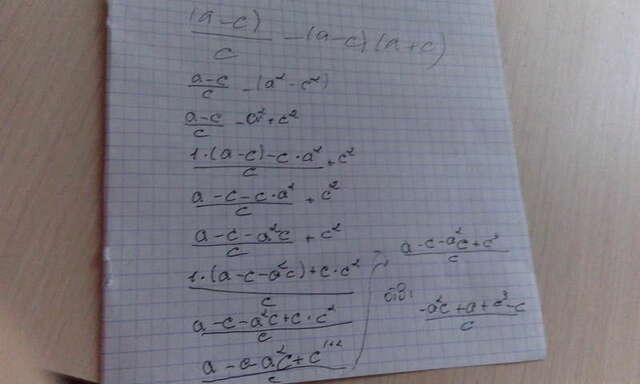 (a-c)/c - (a-c)(a+c)
(a-c)/c - (a²-c²)
(a-c)/c - a²+c²
(1·(a-c)-c·a²)/c + c²
(a-c-c·a²)/c + c²
(a-c-a²c)/c + c²
(1·(a-c-a²c)+c·c²)/c
(a-c-a²c+c·c²)/c
(a-c-a²c+c¹⁺²)/c
= (a-c-a²c+c³)/c
отв: (-a²c+a+c³-c)/c